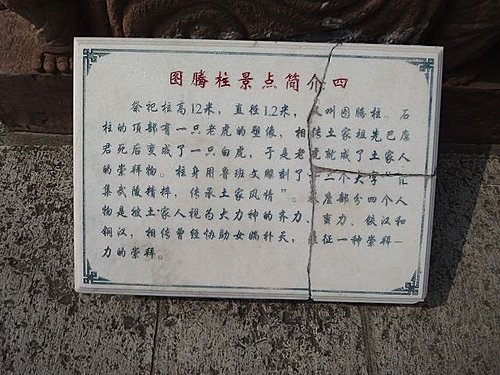 图腾柱景点简介四
祭祀柱高12米，直径1.2米，又叫图腾柱。石
柱的顶部有一只老虎的塑像，相传土家祖先巴廪
君死后变成了一只白虎，于是老虎就成了土家人
的崇拜物。柱身用鲁班文雕刻了十二个大字“汇
集武陵精粹，传承土家风情”。底座部分四个人
物是被土家人视为大力神的齐力、蛮力、铁汉和
铜汉，相传曾经协助女娲补天，象征一种崇拜一
力的崇拜。